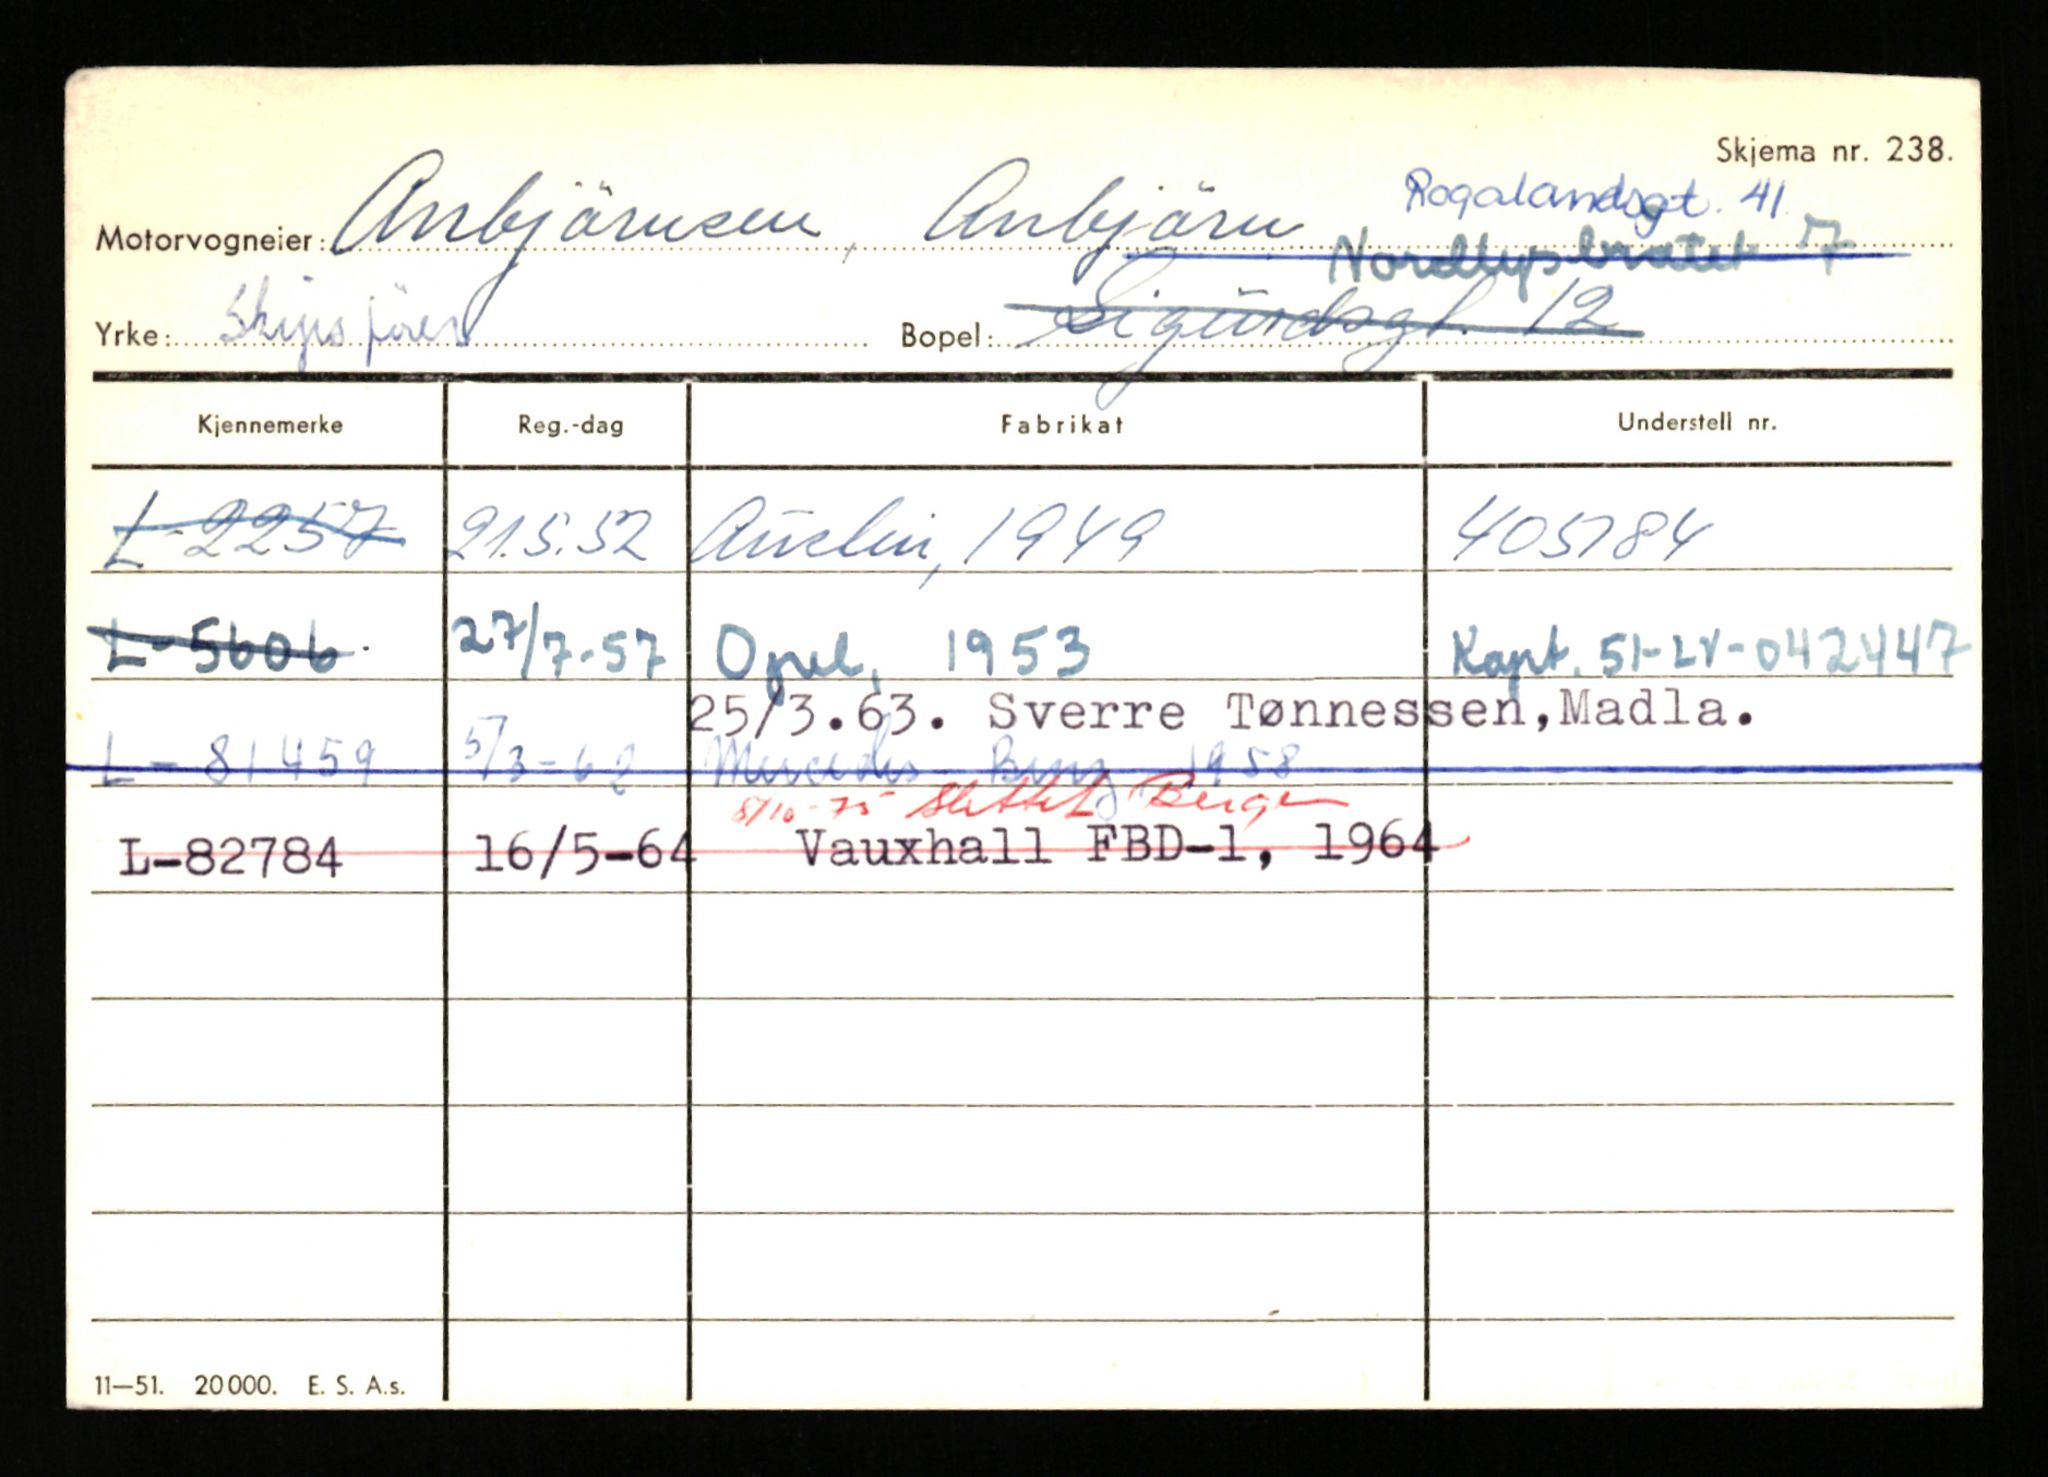 Skjema nr. 238.
Rogalandsgt. 41
Motorvogneier: Anbjörnsen, Anbjörn
Nordlysbratet 7
Yrke: Skipsförer Bopel: Sigurdsgt. 12
Kjennemerke Reg.-dag Fabrikat Understell nr.
L-2257 21.5.52 Austin, 1949 405784
L-5606 27/7-57 Opel, 1953 Kapt. 51-LV-042447
25/3.63. Sverre Tønnessen, Madla.
L-81459 5/3-62 Mercedes Benz 1958
8/10-75 slettet Bergen
L-82784 16/5-64 Vauxhall FBD-1, 1964
11-51. 20000. E. S. A.s.